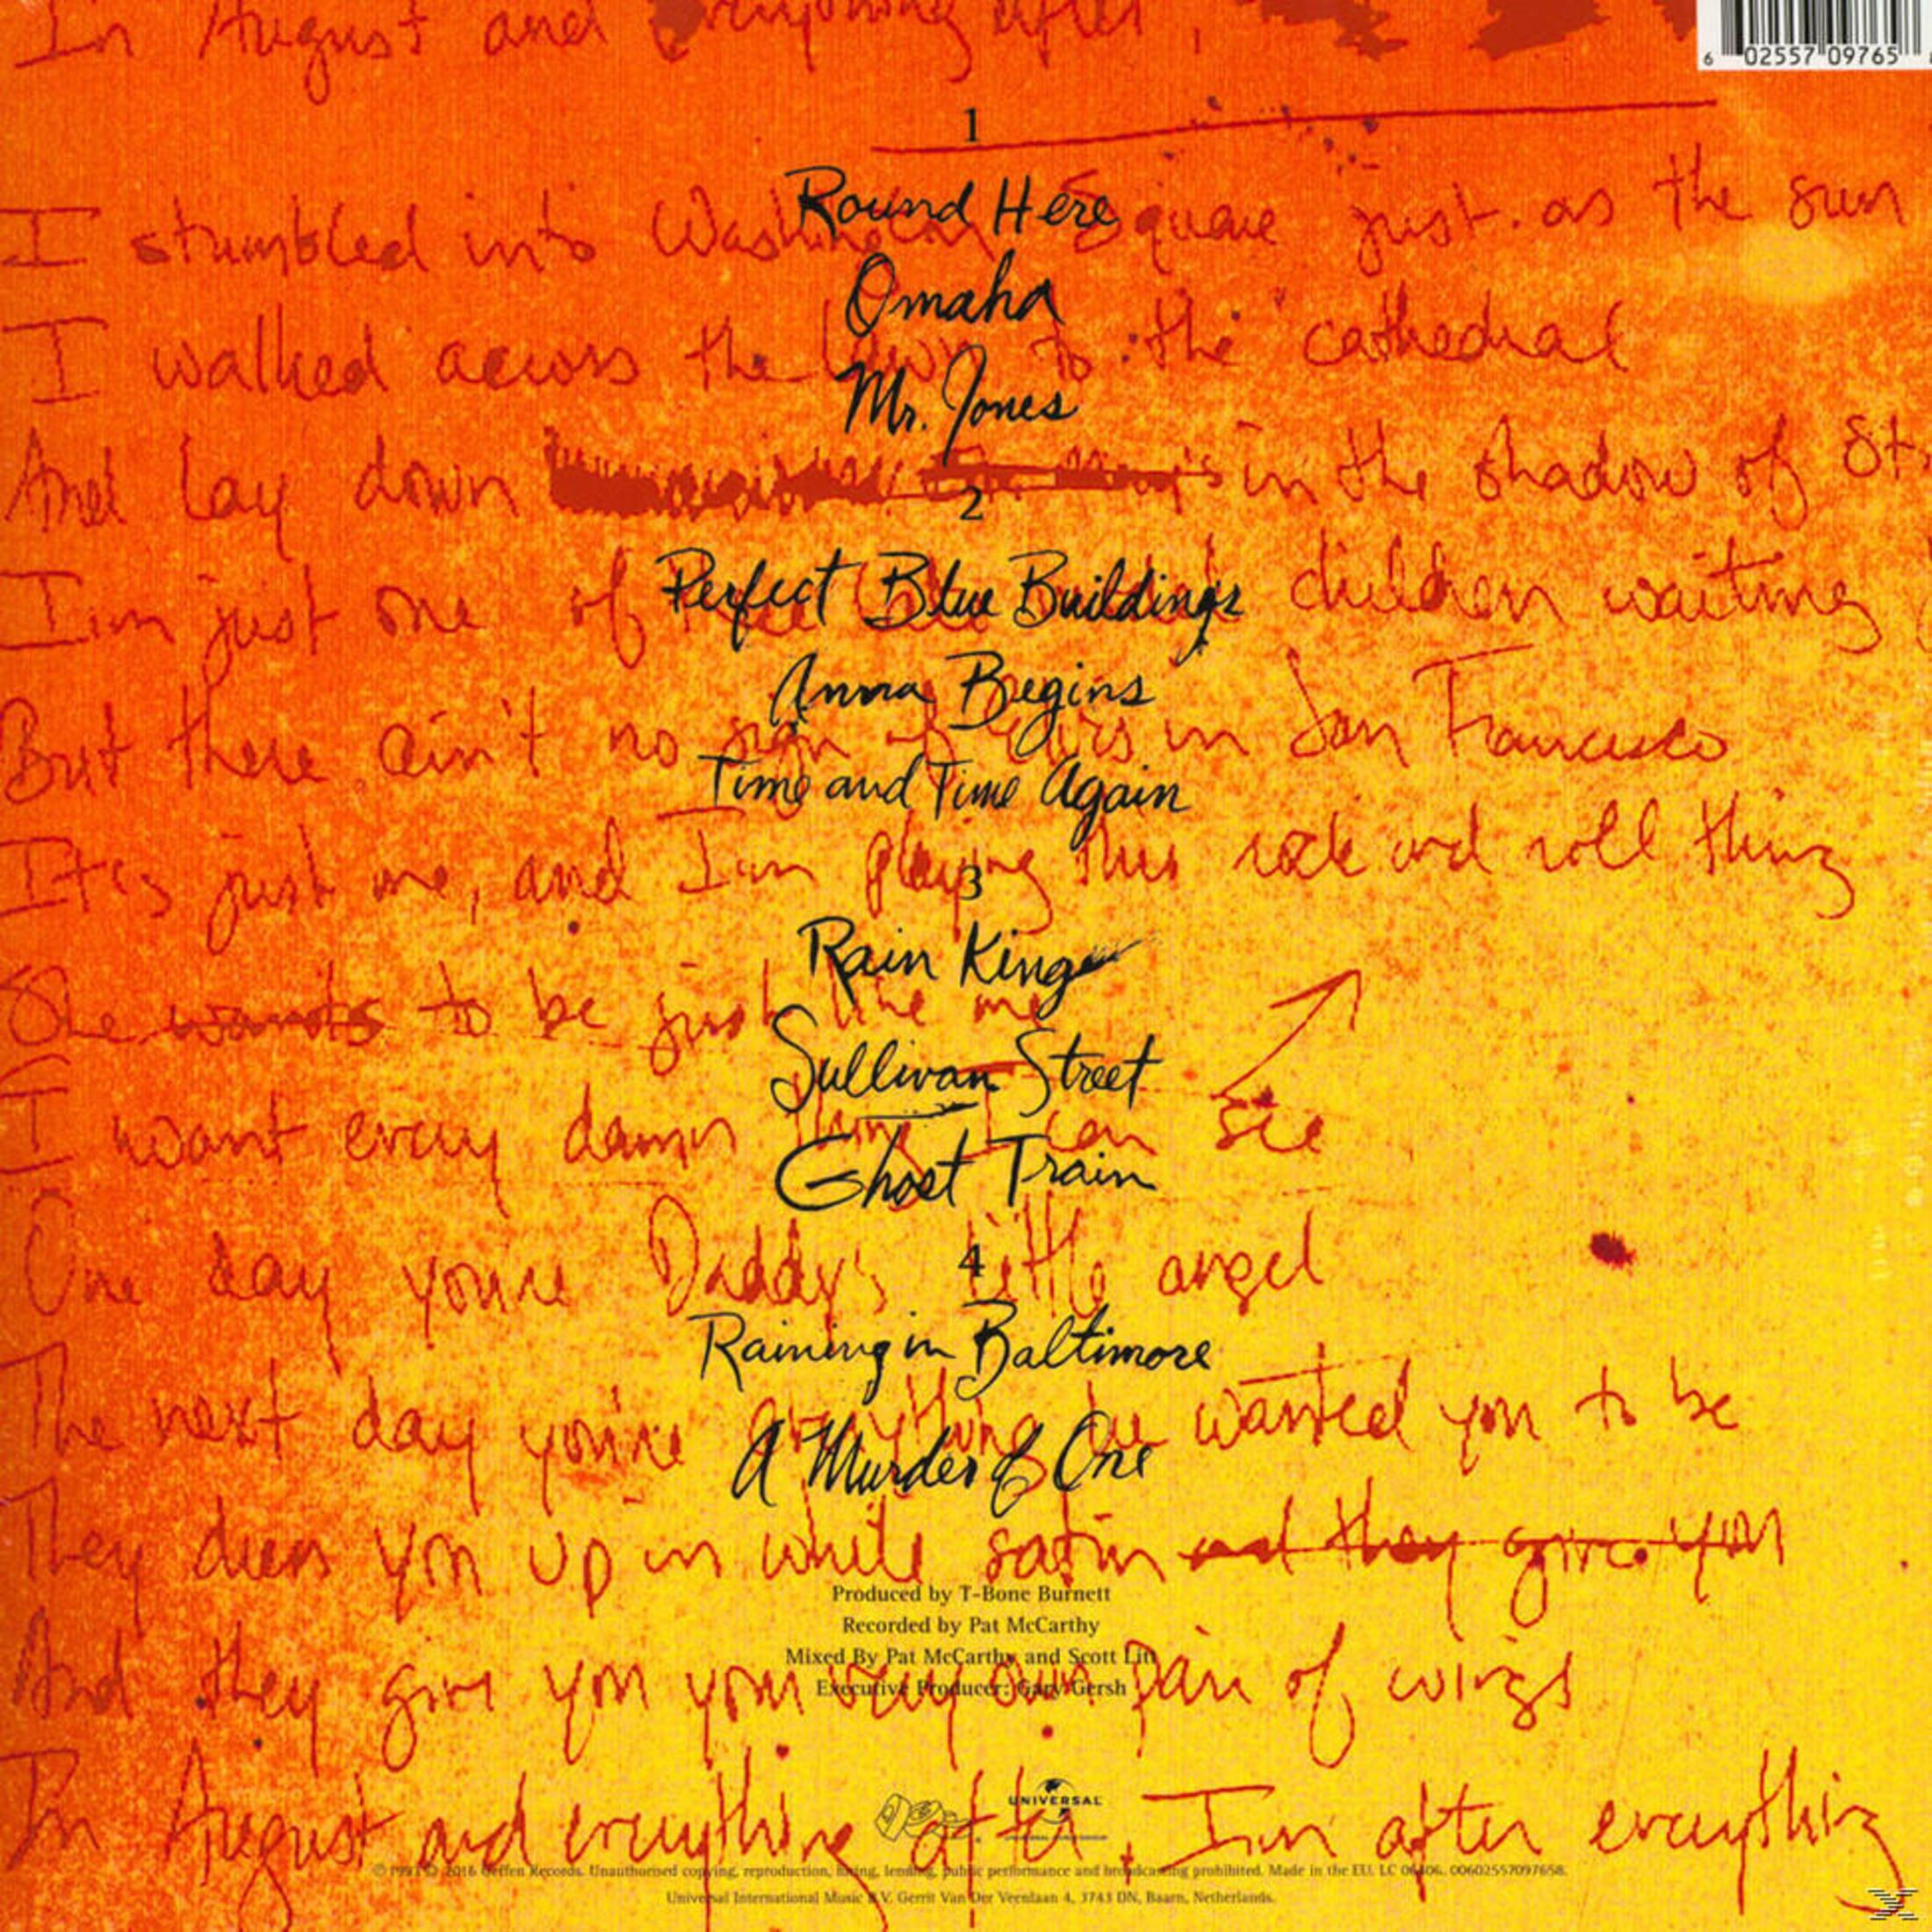 In August and everything after,
6 02557 09765
1
Round Here
I stumbled into Washington Square just as the sun
Omaha
I walked across the lawn to the cathedral
Mr. Jones
And lay down in the shadow of St.
2
Perfect Blue Buildings
I'm just one of these children waiting
Anna Begins
But there ain't no sign of in San Francisco
Time and Time Again
It's just me, and I'm playing this rock and roll thing
3
Rain King
She wants to be just like me
Sullivan Street
I want every damn thing I can see
Ghost Train
4
One day you're Daddy's little angel
Raining in Baltimore
The next day you're everything he wanted you to be
A Murder of One
They dress you up in white satin and they give you
Produced by T-Bone Burnett
Recorded by Pat McCarthy
Mixed By Pat McCarthy and Scott Litt
And they give you your very own pair of wings
Executive Producer: Gary Gersh
UNIVERSAL
In August and everything after, I'm after everything
℗ 1993 © 2016 Geffen Records. Unauthorised copying, reproduction, hiring, lending, public performance and broadcasting prohibited. Made in the EU. LC 06406. 00602557097658.
Universal International Music B.V. Gerrit Van Der Veenlaan 4, 3743 DN, Baarn, Netherlands.